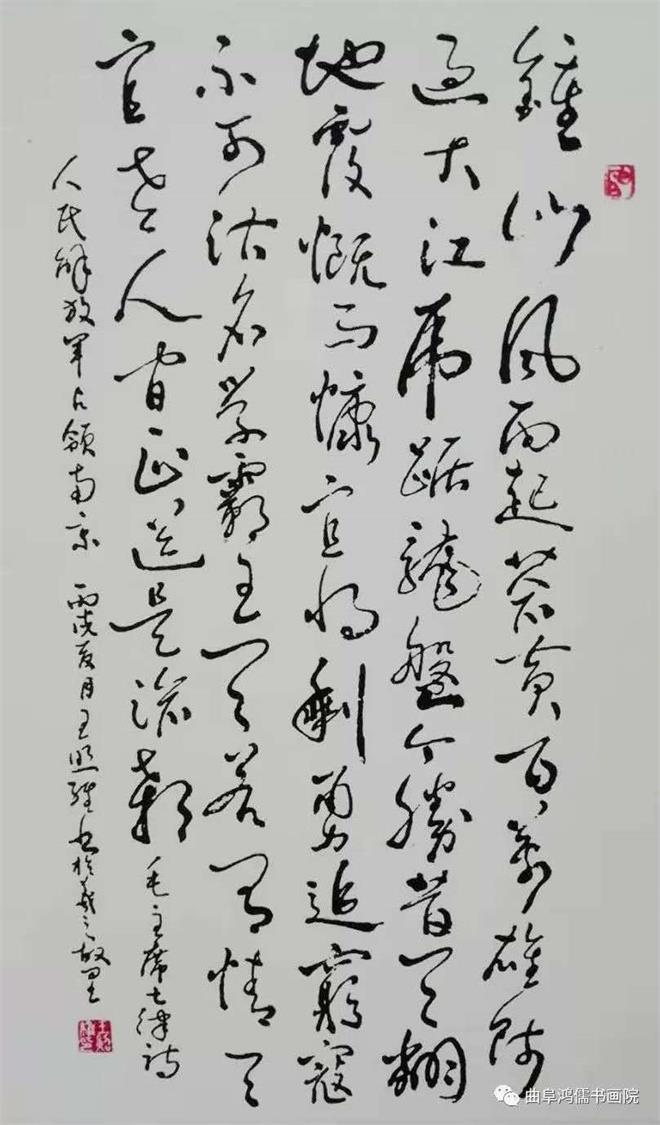 鍾山風雨起蒼黄百万雄师
过大江虎踞龍盤今勝昔天翻
地覆慨而慷宜将剩勇追窮寇
不可沽名学霸王天若有情天
宜老人间正道是滄桑 毛主席七律诗
人民解放军占领南京 丙戌夏月王书於羲之故里
曲阜鸿儒书画院